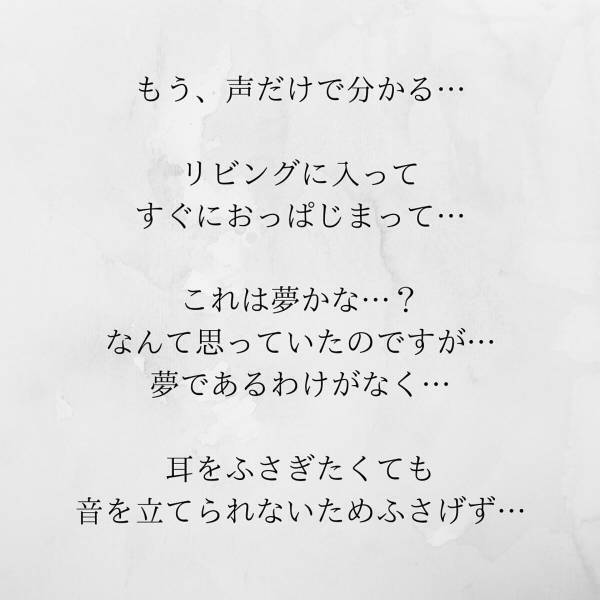 もう、声だけで分かる…
リビングに入って
すぐにおっぱじまって…
これは夢かな…？
なんて思っていたのですが…
夢であるわけがなく…
耳をふさぎたくても
音を立てられないためふさげず…